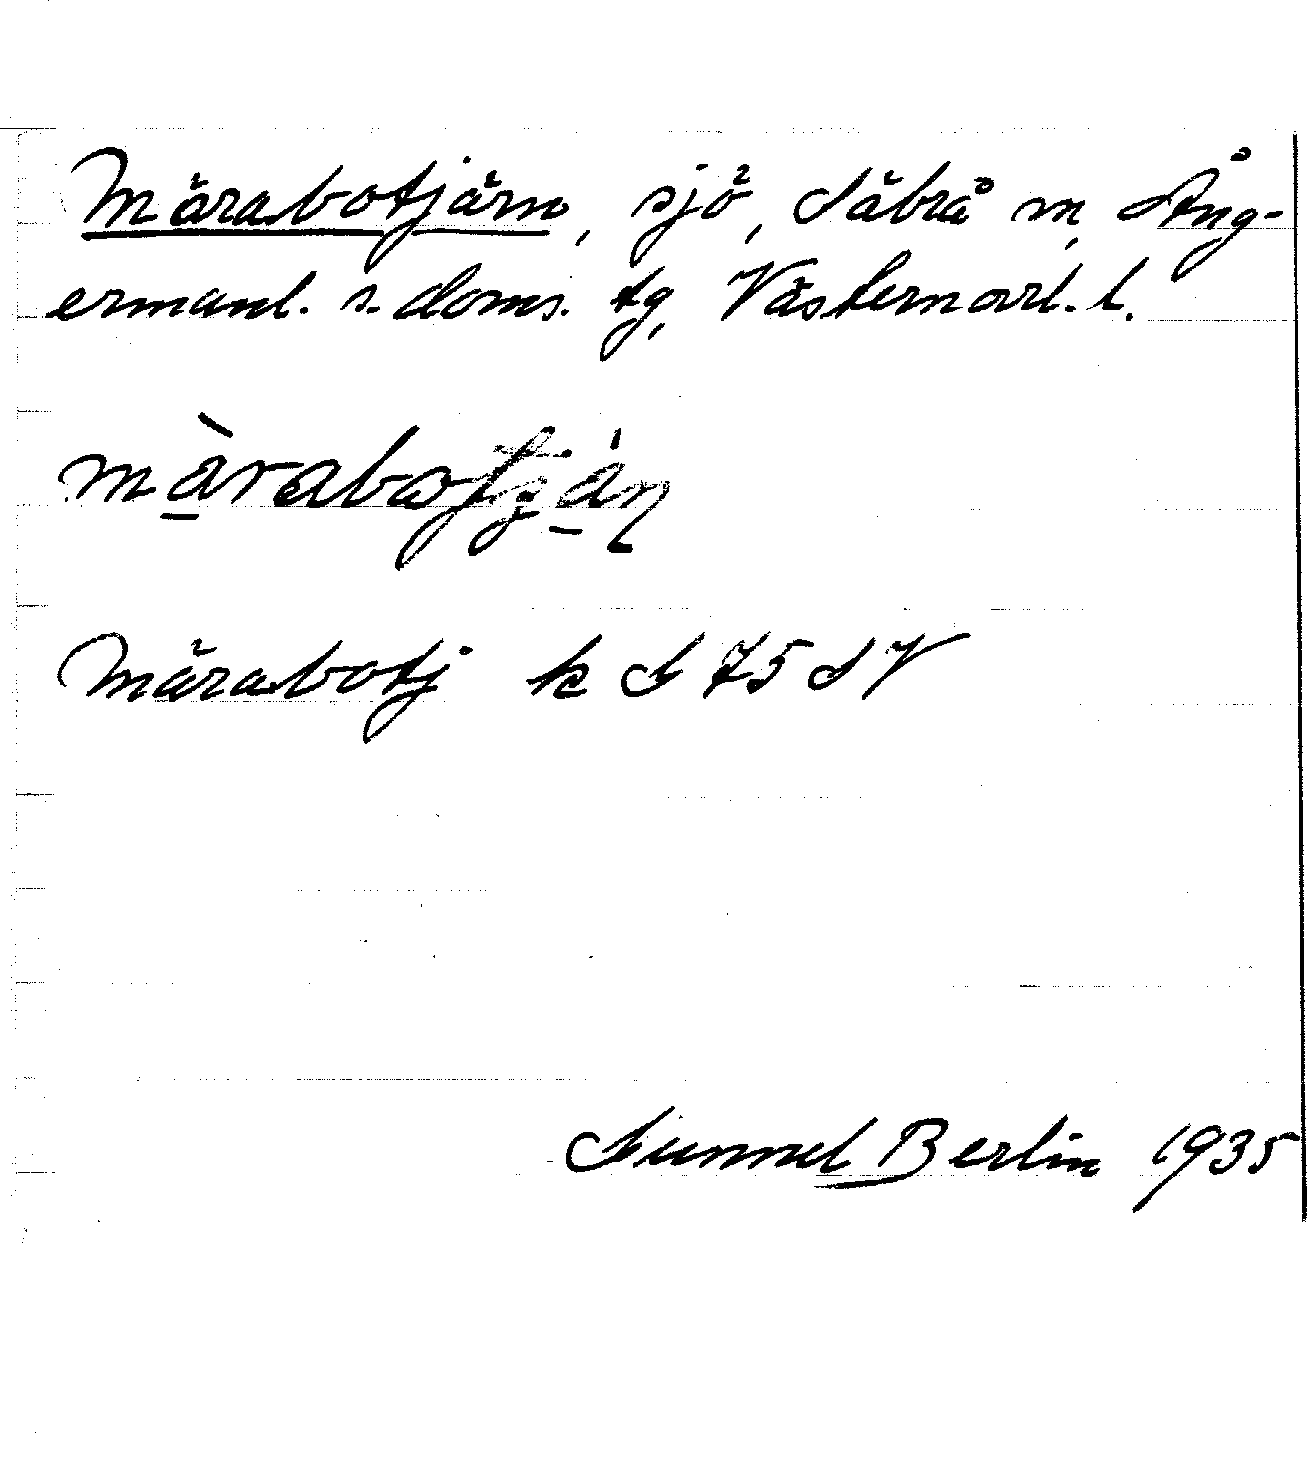 Märabotjärn, sjö, Säbrå sn, Ång-
ermanl. s. doms. tg, Västernorrl. l.
màrabotján
Märabotj k S 75 SV
Gunnel Berlin 1935